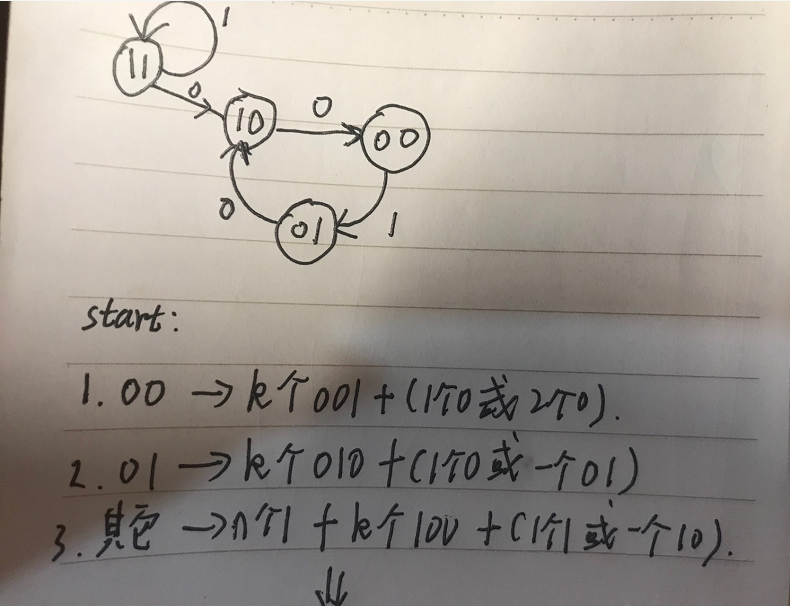 1
11
0
10
0
00
0
01
1
start:
1. 00 → k个001 + (1个0或2个0).
2. 01 → k个010 + (1个0或一个01)
3. 其它 → n个1 + k个100 + (1个1或一个10).
⇓